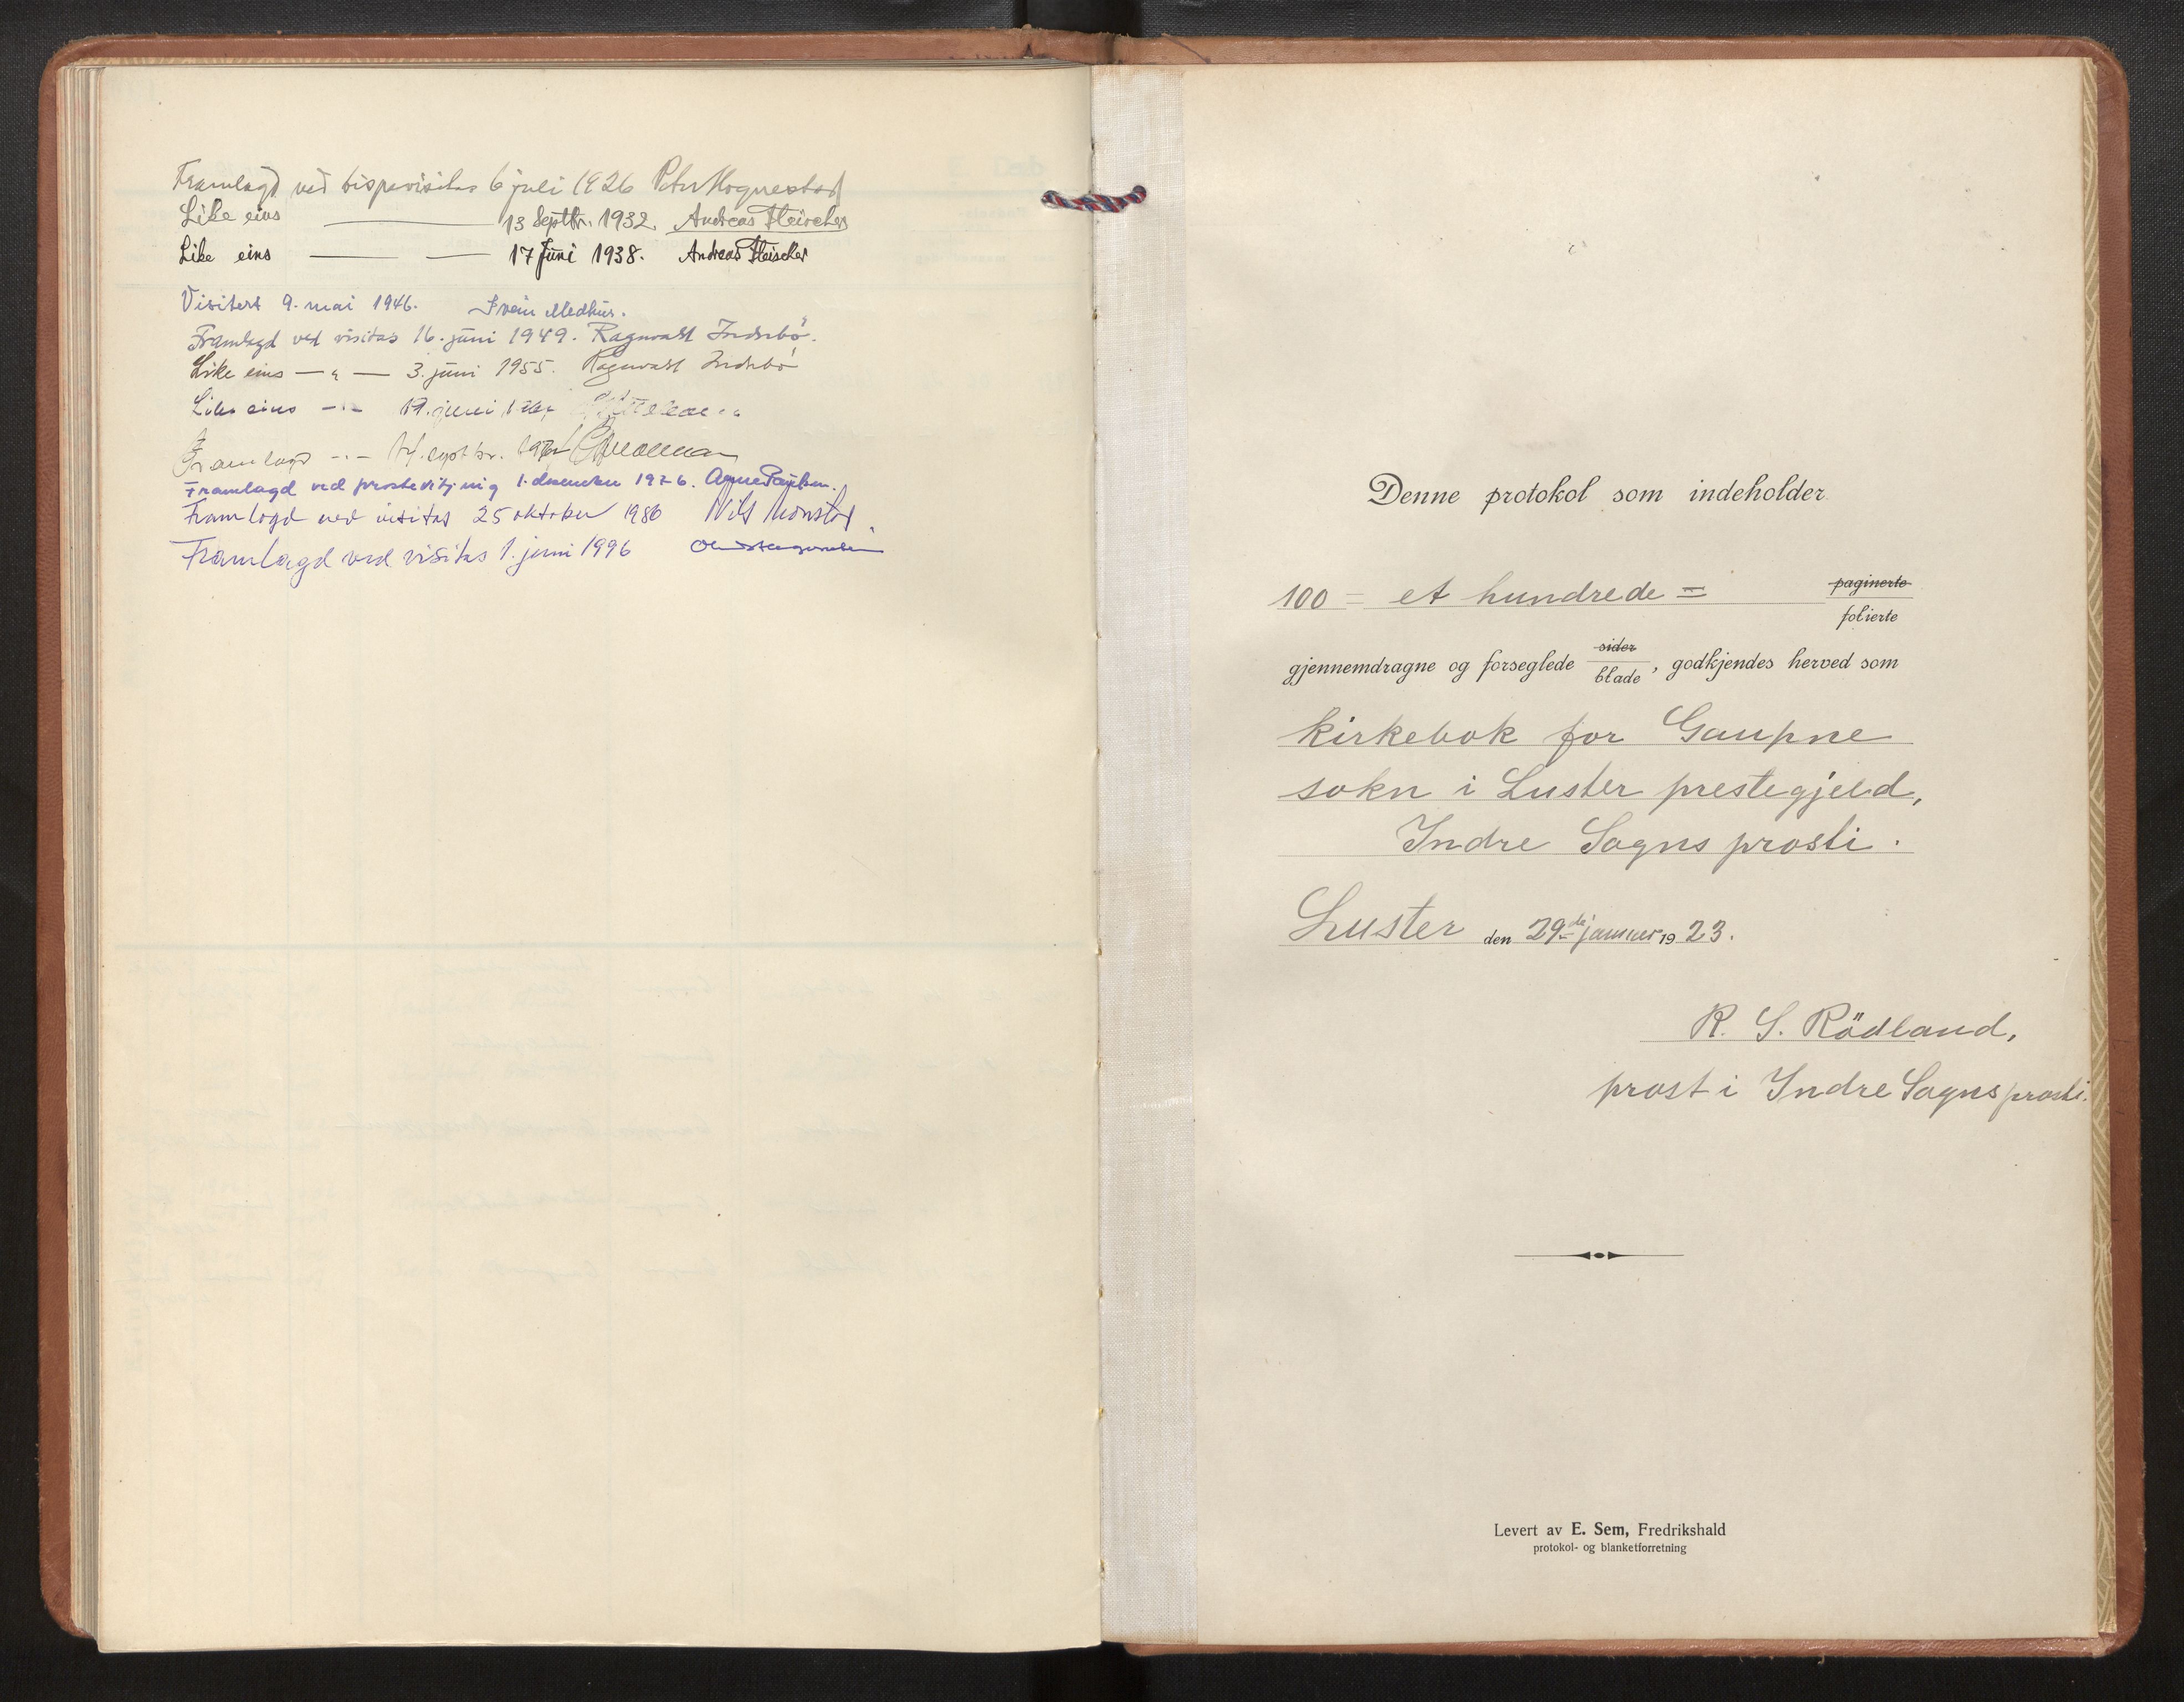 Framlagd ved bispevisitas 6 juli 1926 Peter Hognestad
Like eins 13 Septbr. 1932. Andreas Fleischer
Like eins 17 Juni 1938. Andreas Fleischer
Visitert 9. mai 1946. Svein Medhus.
Framlagd ved visitas 16. juni 1949. Ragnvald Indrebö.
Like eins — " — 3. juni 1955. Ragnvald Indrebö
Like eins — " — 19. juni
Framlagd — " — 14. septbr.
Framlagd ved prostevitjing 1. desember 1976.
Framlagd ved visitas 25 oktober 1986
Framlagd ved visitas 1. juni 1996
Denne protokol som indeholder
100 = et hundrede = paginerte
folierte
gjennemdragne og forseglede sider
blade, godkjendes herved som
kirkebok for Gaupne
sokn i Luster prestegjeld,
Indre Sogns prosti.
Luster den 29de januar 1923.
R. S. Rödland,
prost i Indre Sogns prosti.
Levert av E. Sem, Fredrikshald
protokol- og blanketforretning